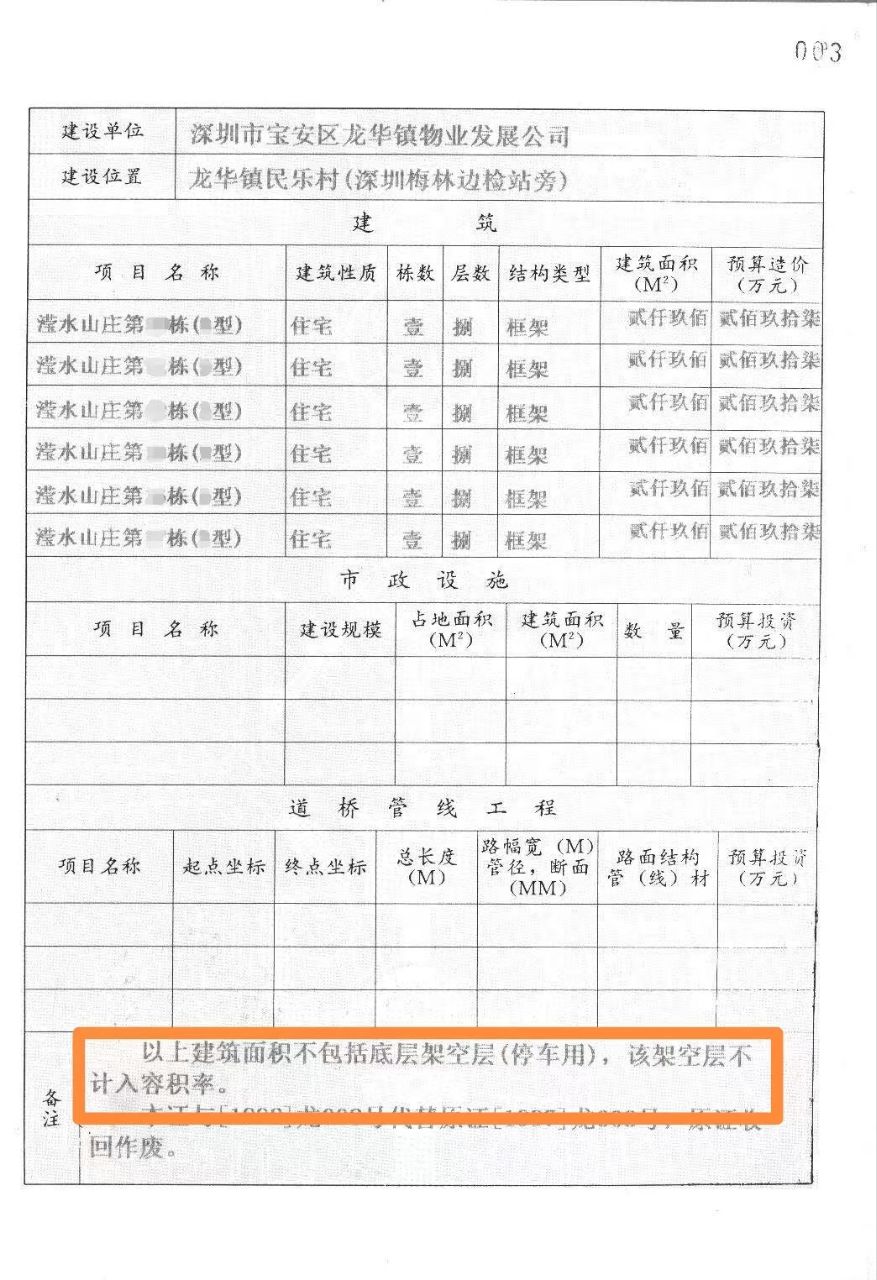 003
建设单位 深圳市宝安区龙华镇物业发展公司
建设位置 龙华镇民乐村(深圳梅林边检站旁)
建 筑
项目名称 建筑性质 栋数 层数 结构类型 建筑面积(M²) 预算造价(万元)
滢水山庄第 栋( 型) 住宅 壹 捌 框架 贰仟玖佰 贰佰玖拾柒
滢水山庄第 栋( 型) 住宅 壹 捌 框架 贰仟玖佰 贰佰玖拾柒
滢水山庄第 栋( 型) 住宅 壹 捌 框架 贰仟玖佰 贰佰玖拾柒
滢水山庄第 栋( 型) 住宅 壹 捌 框架 贰仟玖佰 贰佰玖拾柒
滢水山庄第 栋( 型) 住宅 壹 捌 框架 贰仟玖佰 贰佰玖拾柒
滢水山庄第 栋( 型) 住宅 壹 捌 框架 贰仟玖佰 贰佰玖拾柒
市政设施
项目名称 建设规模 占地面积(M²) 建筑面积(M²) 数量 预算投资(万元)
道桥管线工程
项目名称 起点坐标 终点坐标 总长度(M) 路幅宽(M)管径,断面(MM) 路面结构管(线)材 预算投资(万元)
备注
以上建筑面积不包括底层架空层(停车用),该架空层不
计入容积率。
代替原证
回作废。